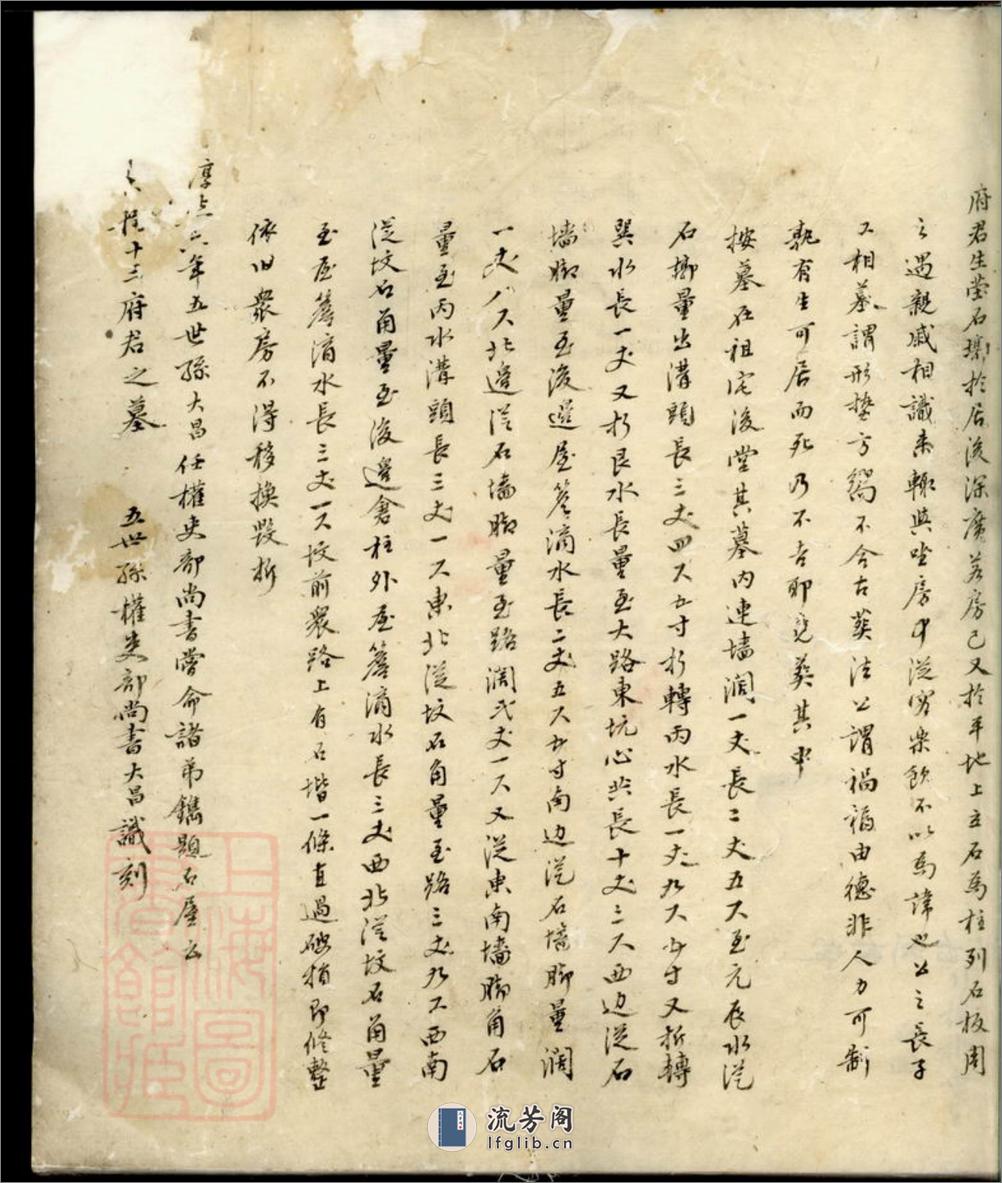 府君生塋石槨於居後深廣若房已又於平地上立石為柱列石板周
之遇親戚相識来輙與坐房中從容樂飲不以為諱也公之長子
又相墓謂形勢方 不合古葬法公謂禍福由德非人力可制
孰有生可居而死乃不吉耶竟葬其中
按墓在祖宅後堂其墓内連墻濶一丈長二丈五尺至元辰水從
石槨量出溝頭長三丈四尺五寸折轉丙水長一丈九尺五寸又折轉
巽水長一丈又折艮水長量至大路東坑心共長十丈三尺西边從石
墻脚量至後邊屋簷滴水長二丈五尺五寸南边從石墻脚量濶
一丈八尺北邉從石墻脚量至路濶弍丈一尺又從東南墻脚角石
量至丙水溝頭長三丈一尺東北從坟石角量至路三丈九尺西南
從坟石角量至後邊倉柱外屋簷滴水長三丈西北從坟石角量
至屋簷滴水長三丈一尺坟前衆路上有石堦一條直過破損即修整
依旧衆房不得移換毀折
淳 六年五世孫大昌任權吏部尚書嘗命諸弟鐫題石屋云
十三府君之墓 五世孫權吏部尚書大昌識刻
上海圖書館藏
流芳阁
lfglib.cn